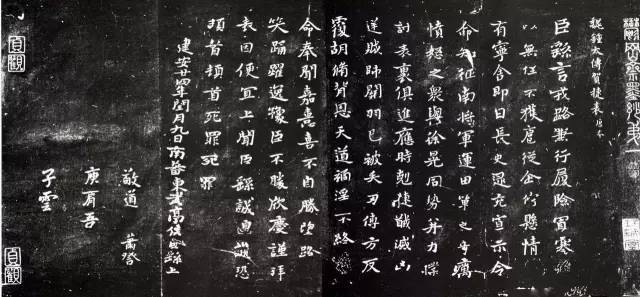 魏鍾太傅賀捷表
臣繇言戎路兼行履險冒寒臣
以無任不獲扈從企佇懸情無
有寧舍即日長史逮充宣示令
命知征南將軍運田單之奇厲
憤怒之衆與徐晃同勢并力撲
討表裏俱進應時剋捷馘滅凶
逆賊帥關羽已被矢刃傅方反
覆胡脩背恩天道禍淫不終厥
命奉聞嘉憙喜不自勝望路載
笑踊躍逸豫臣不勝欣慶謹拜
表因便宜上聞臣繇誠惶誠恐
頓首頓首死罪死罪
建安廿四年閏月九日南蕃東武亭侯臣繇上
敬道
庾肩吾
子雲
貞觀
貞觀